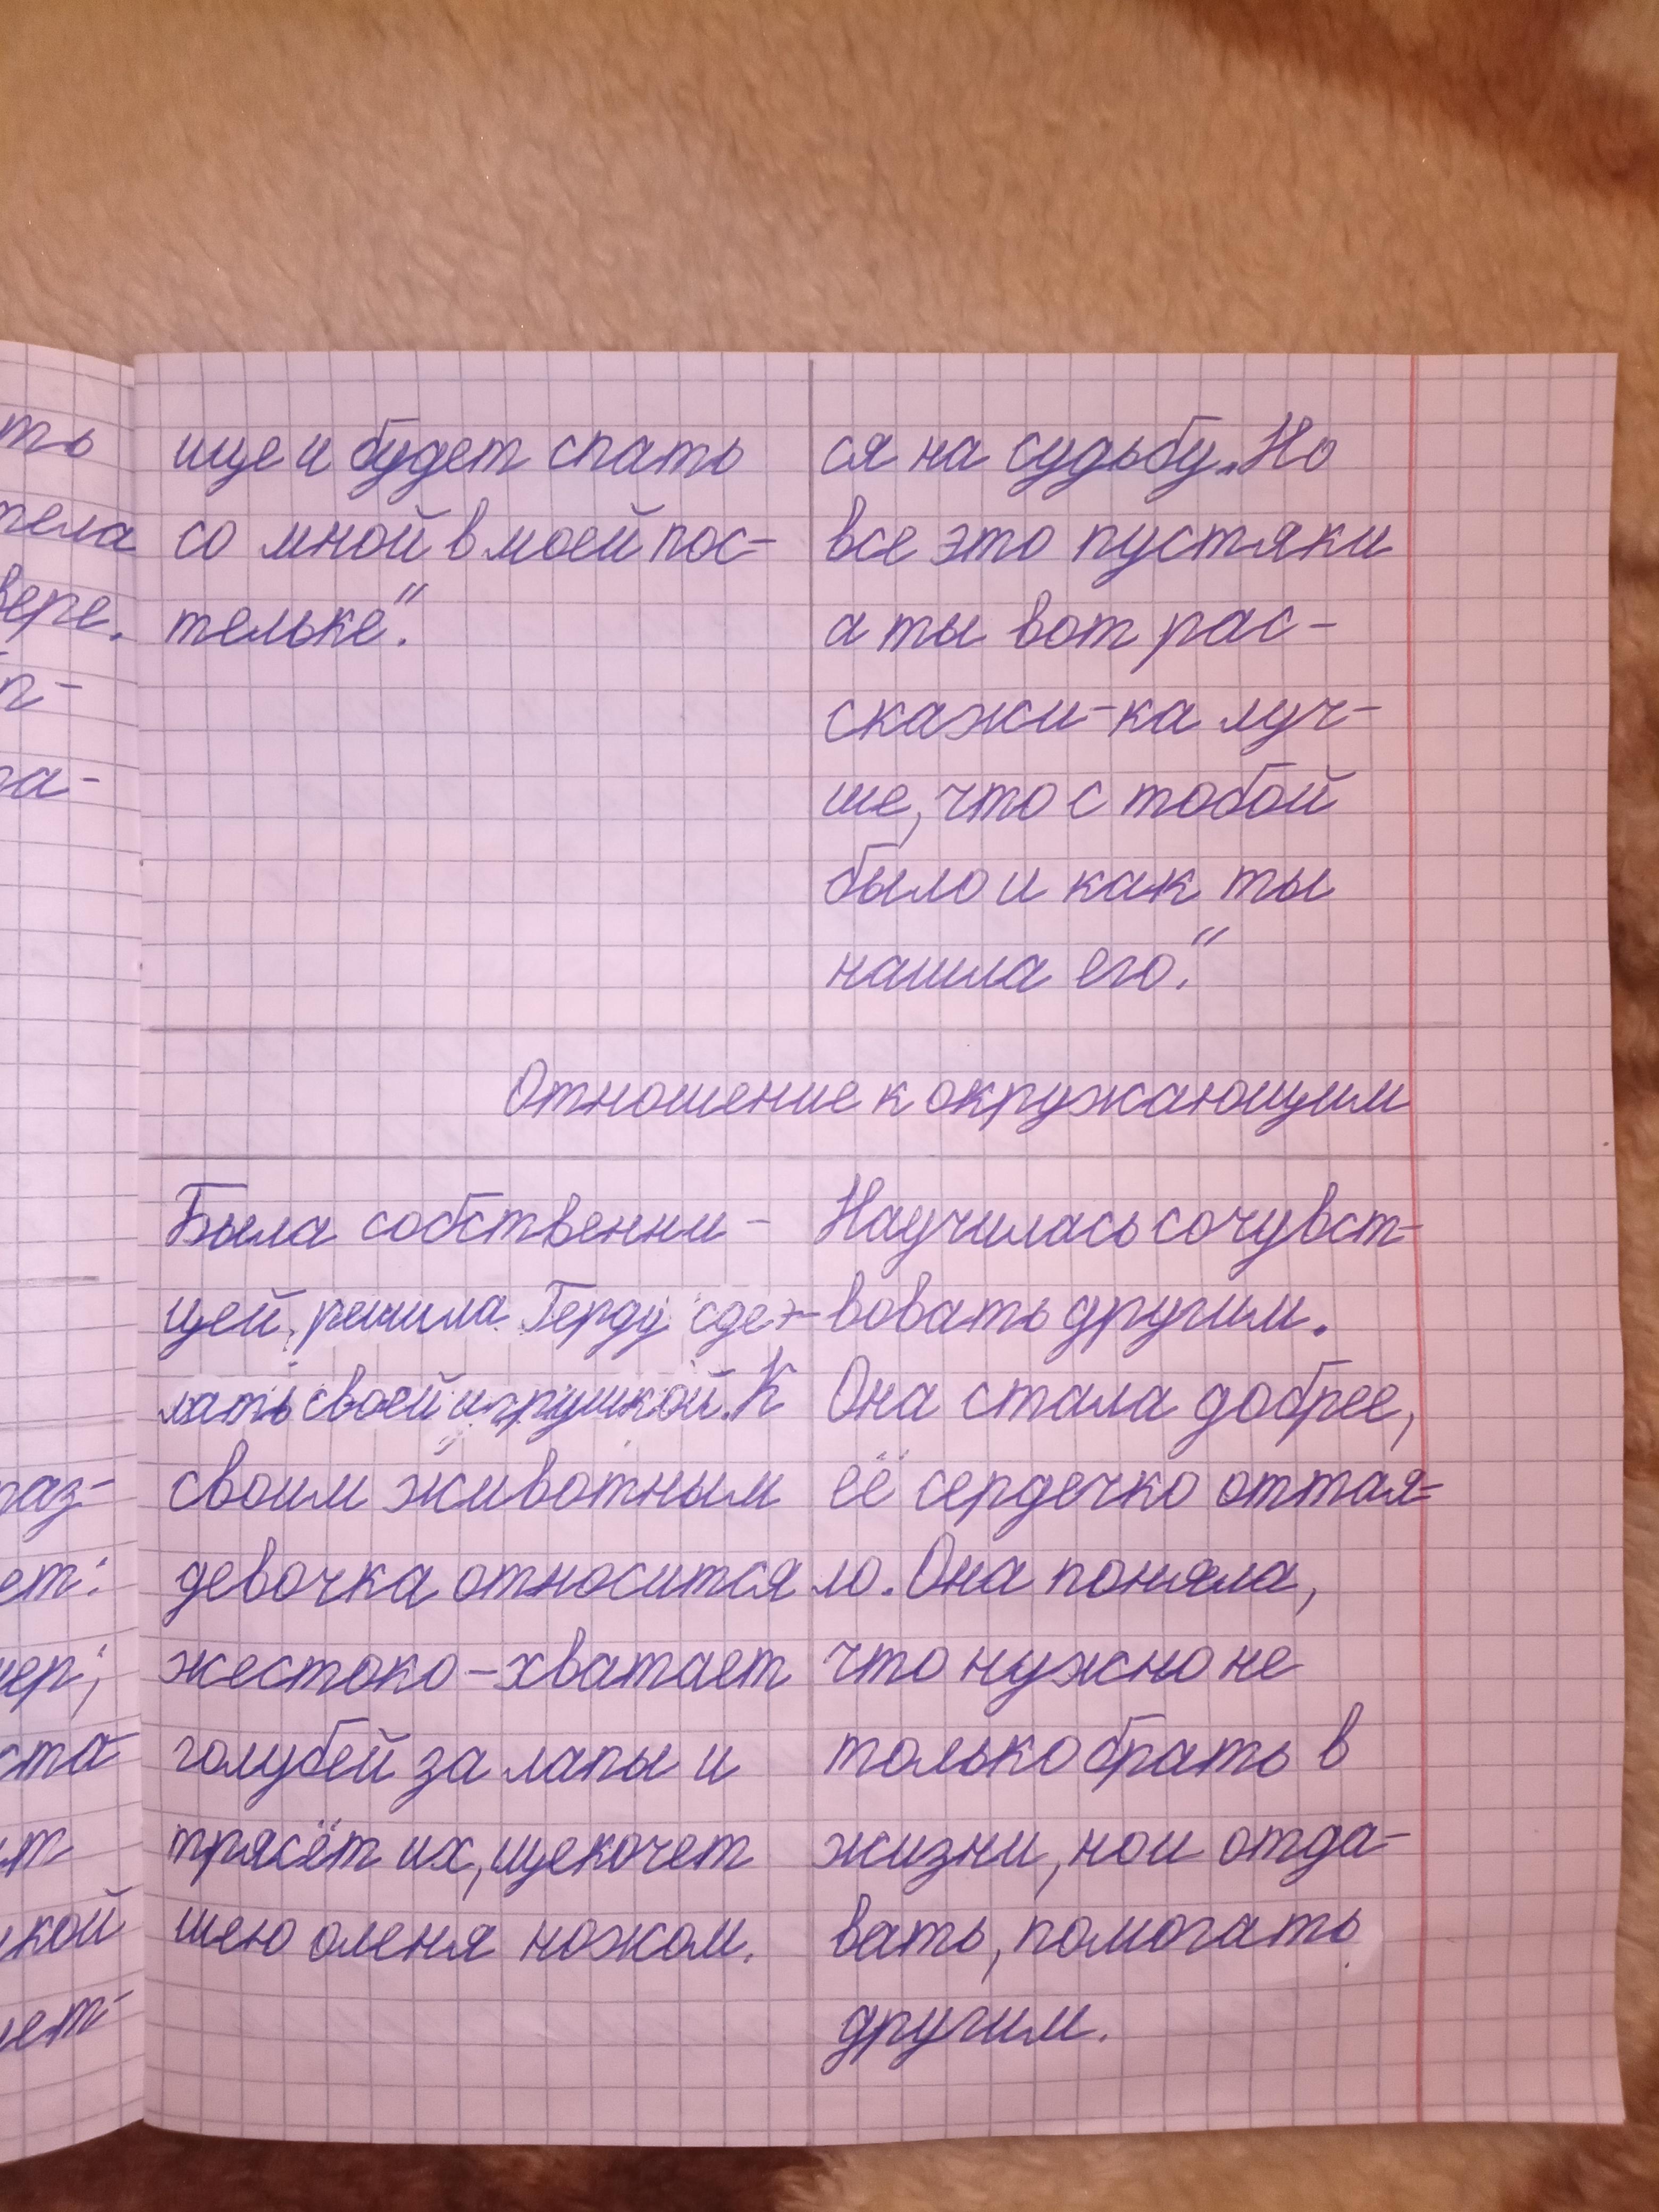 ть
тела
вере.
п-
га-
раз-
ет:
ста-
кой
ище и будет спать
со мной в моей пос-
тельке".
ся на судьбу. Но
все это пустяки
а ты вот рас-
скажи-ка луч-
ше, что с тобой
было и как ты
нашла его."
Отношение к окружающим
Была собственни-
цей, решила Герду сде-
лать своей игрушкой. К
своим животным
девочка относится
жестоко-хватает
голубей за лапы и
трясёт их, щекочет
шею оленя ножом.
Научилась сочувст-
вовать другим.
Она стала добрее,
её сердечко оттая-
ло. Она поняла,
что нужно не
только брать в
жизни, но и отда-
вать, помогать
другим.